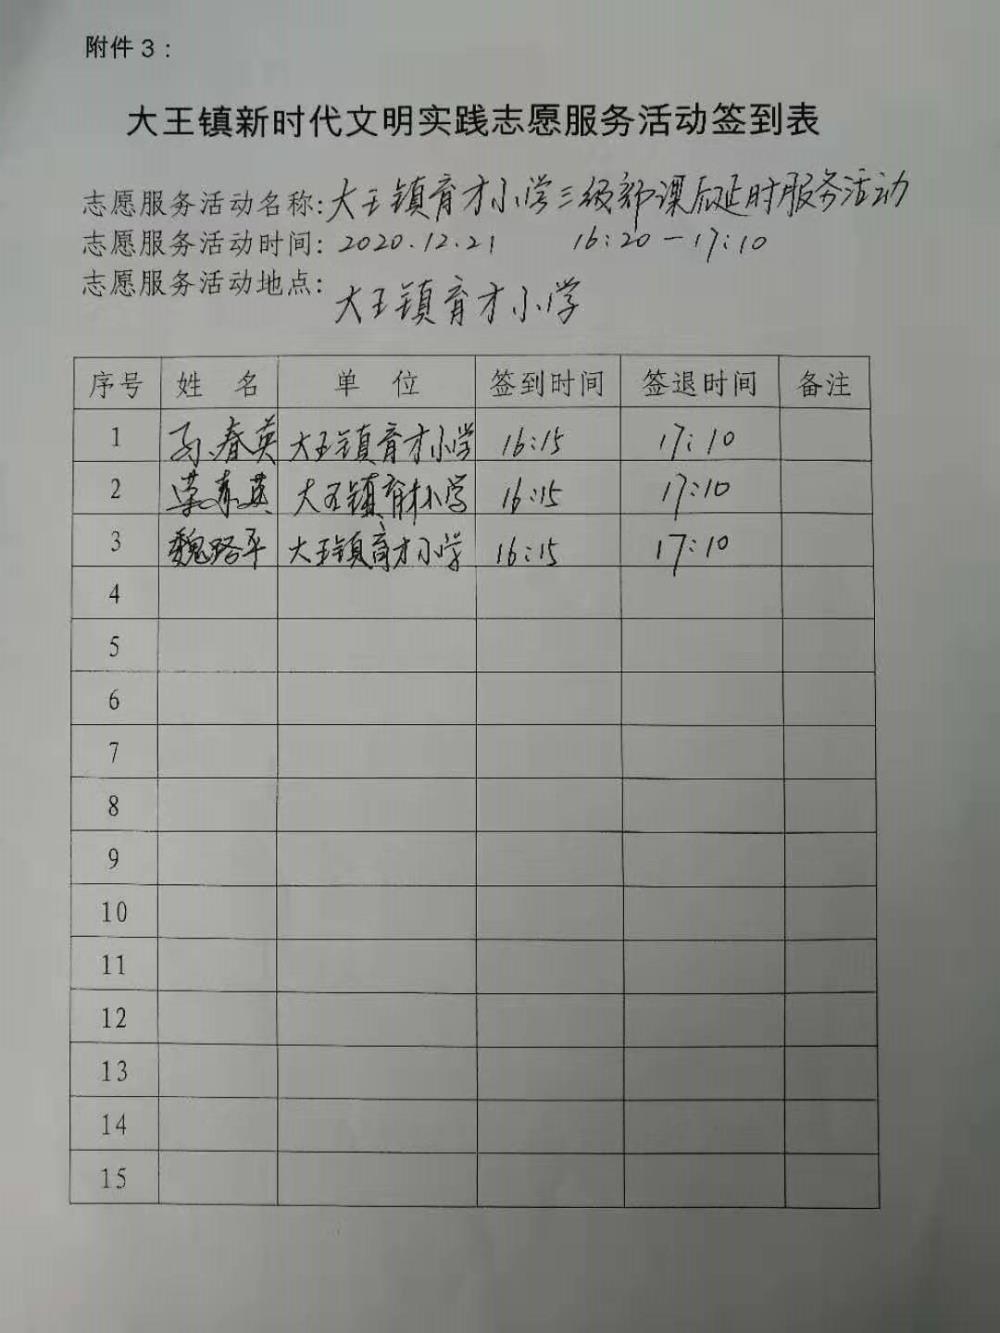 附件3：
大王镇新时代文明实践志愿服务活动签到表
志愿服务活动名称:大王镇育才小学三级部课后延时服务活动
志愿服务活动时间: 2020.12.21 16:20-17:10
志愿服务活动地点: 大王镇育才小学
序号 姓 名 单 位 签到时间 签退时间 备注
1 孙春英 大王镇育才小学 16:15 17:10
2 大王镇育才小学 16:15 17:10
3 魏路平 大王镇育才小学 16:15 17:10
4
5
6
7
8
9
10
11
12
13
14
15